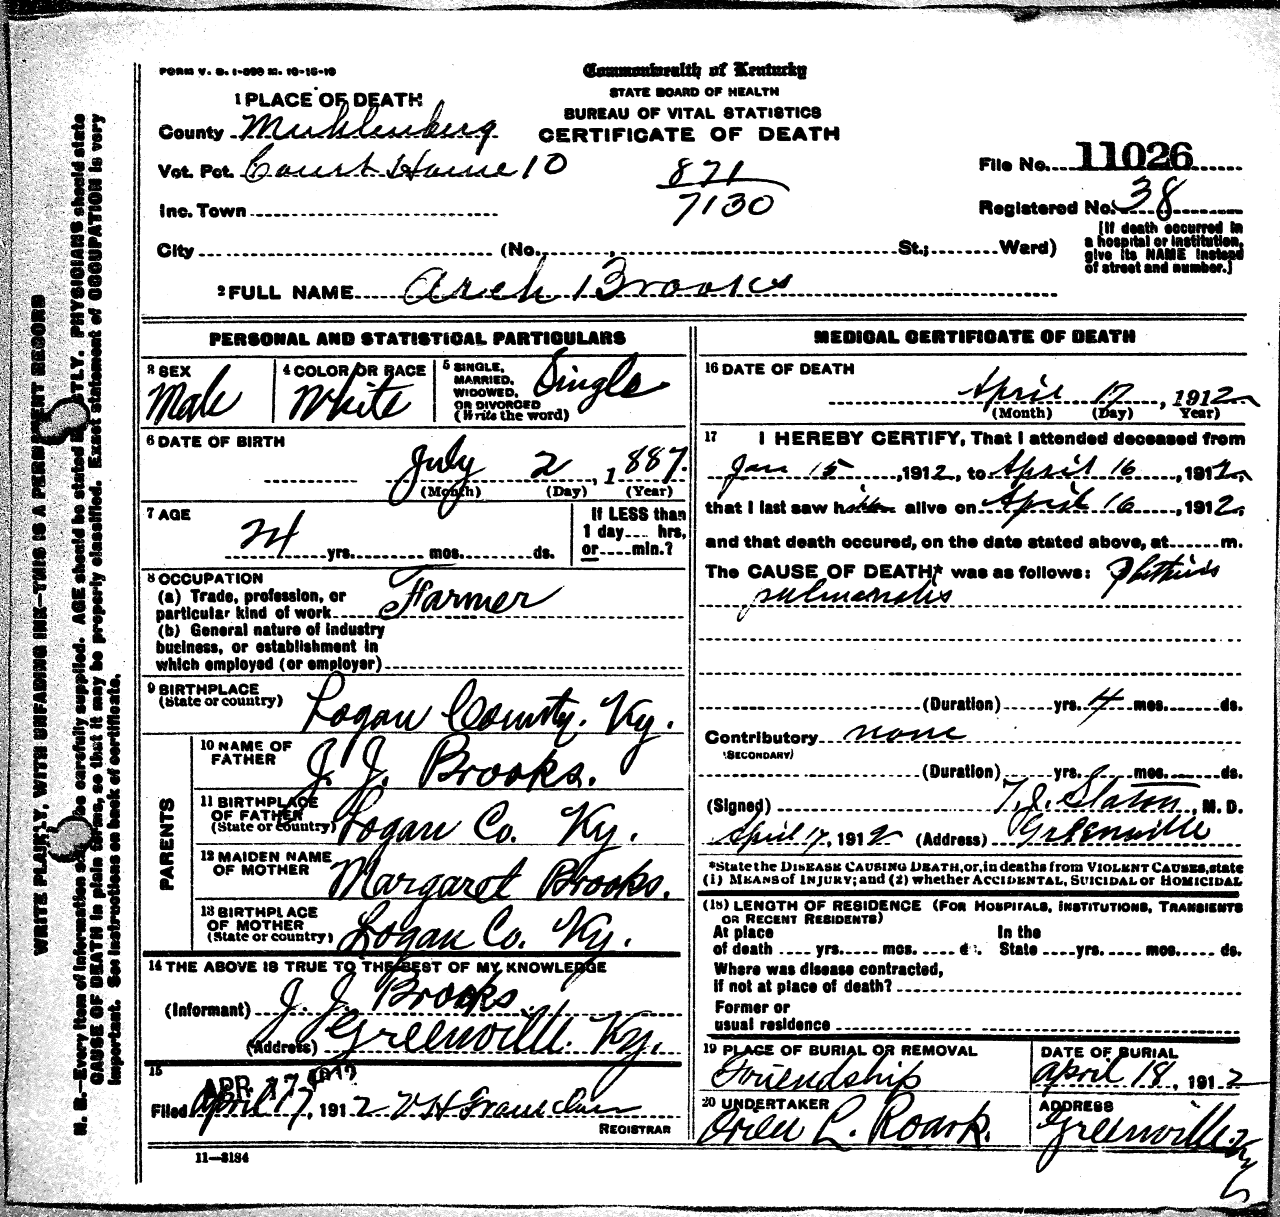 FORM V. S. 1-  M. 10-15-10
Commonwealth of Kentucky
STATE BOARD OF HEALTH
BUREAU OF VITAL STATISTICS
CERTIFICATE OF DEATH
1 PLACE OF DEATH
County Muhlenberg
Vot. Pct. Court House 10
871
7130
File No. 11026
Inc. Town
Registered No. 38
City (No. , St.; Ward)
[If death occurred in
a hospital or institution,
give its NAME instead
of street and number.]
2 FULL NAME Arch Brooks
PERSONAL AND STATISTICAL PARTICULARS
3 SEX
Male
4 COLOR OR RACE
White
5 SINGLE,
MARRIED,
WIDOWED,
OR DIVORCED
(Write the word)
Single
6 DATE OF BIRTH
July 2, 1887.
(Month) (Day) (Year)
7 AGE
24 yrs. mos. ds.
If LESS than
1 day hrs,
or min.?
8 OCCUPATION
(a) Trade, profession, or
particular kind of work Farmer
(b) General nature of industry
business, or establishment in
which employed (or employer)
9 BIRTHPLACE
(State or country)
Logan County. Ky.
PARENTS
10 NAME OF
FATHER
J. J. Brooks.
11 BIRTHPLACE
OF FATHER
(State or country)
Logan Co. Ky.
12 MAIDEN NAME
OF MOTHER
Margaret Brooks.
13 BIRTHPLACE
OF MOTHER
(State or country)
Logan Co. Ky.
14 THE ABOVE IS TRUE TO THE BEST OF MY KNOWLEDGE
(Informant) J. J. Brooks.
(Address) Greenville. Ky.
15
APR. 17 1912
Filed April 17, 1912 V H
REGISTRAR
11-3184
MEDICAL CERTIFICATE OF DEATH
16 DATE OF DEATH
April 17, 1912
(Month) (Day) (Year)
17 I HEREBY CERTIFY, That I attended deceased from
Jan 15, 1912, to April 16, 1912,
that I last saw him alive on April 16, 1912,
and that death occured, on the date stated above, at m.
The CAUSE OF DEATH* was as follows: Phthisis
pulmonalis
(Duration) yrs. 4 mos. ds.
Contributory none
(SECONDARY)
(Duration) yrs. mos. ds.
(Signed) T. J. Slaton, M. D.
April 17, 1912 (Address) Greenville
*State the DISEASE CAUSING DEATH, or, in deaths from VIOLENT CAUSES, state
(1) MEANS of INJURY; and (2) whether ACCIDENTAL, SUICIDAL or HOMICIDAL
(18) LENGTH OF RESIDENCE (FOR HOSPITALS, INSTITUTIONS, TRANSIENTS
OR RECENT RESIDENTS)
At place In the
of death yrs. mos. ds. State yrs. mos. ds.
Where was disease contracted,
If not at place of death?
Former or
usual residence
19 PLACE OF BURIAL OR REMOVAL
Friendship
DATE OF BURIAL
April 18, 1912
20 UNDERTAKER
Orien L. Roark.
ADDRESS
Greenville. Ky
WRITE PLAINLY, WITH UNFADING INK—THIS IS A PERMANENT RECORD
N. B.—Every item of information should be carefully supplied. AGE should be stated EXACTLY. PHYSICIANS should state
CAUSE OF DEATH in plain terms, so that it may be properly classified. Exact statement of OCCUPATION is very
important. See instructions on back of certificate.